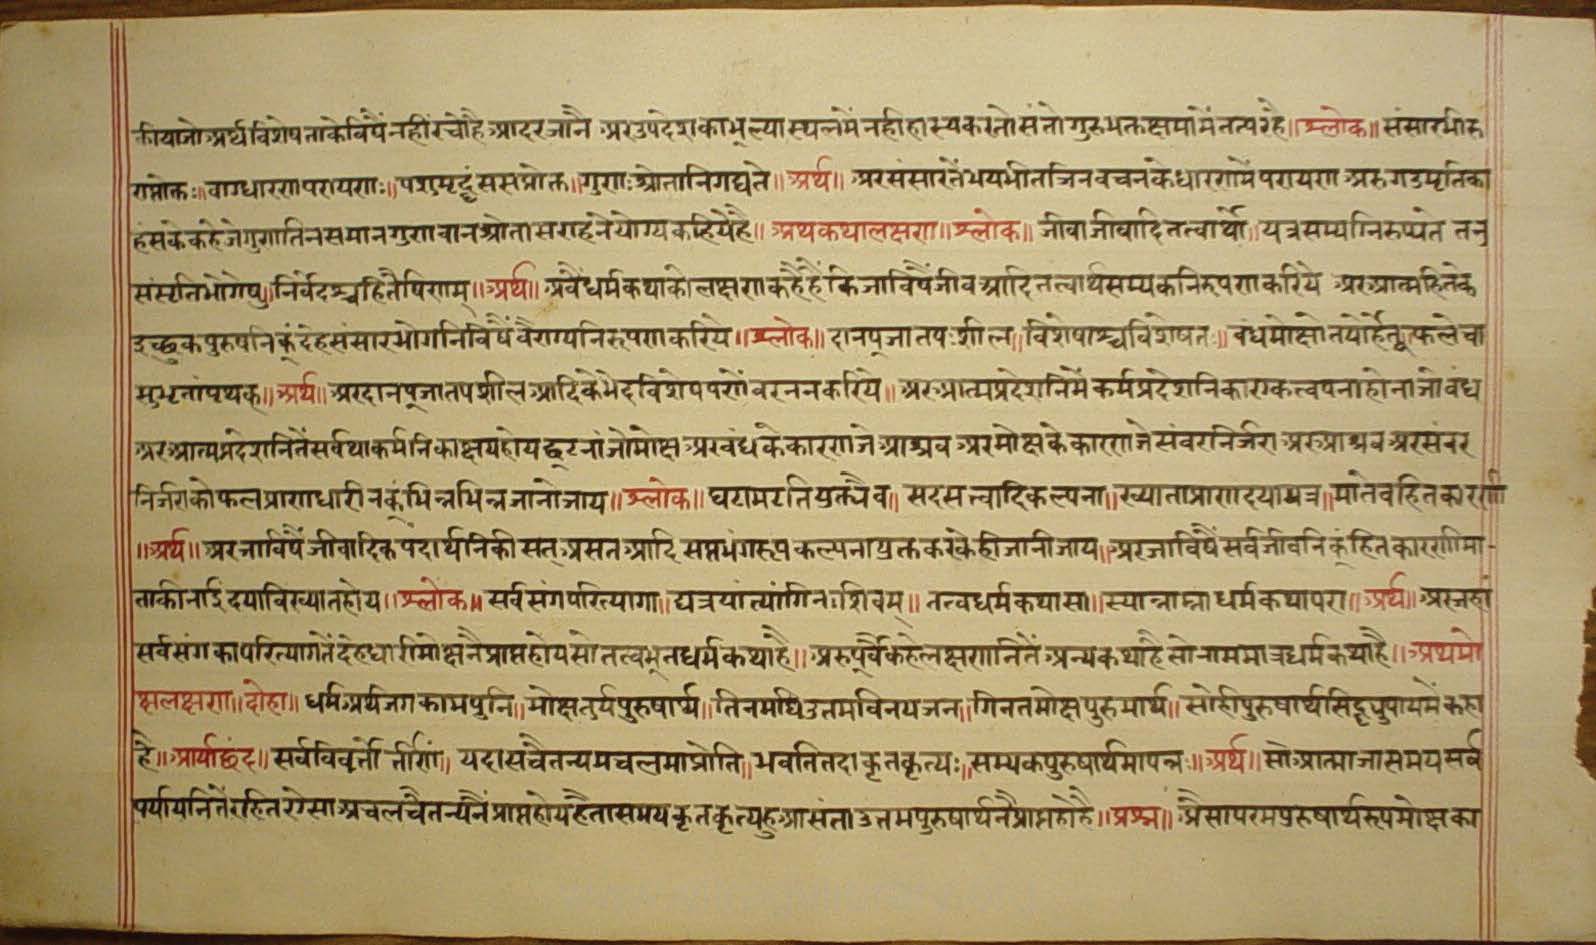 कीयाजो अर्थविशेषताकेविषैंनहींरचोहै आदरजानै अरउपदेशकाभूल्यास्थलमेंनहीहास्यकरतोसंतोगुरुभक्तक्षमामेंतत्परहै॥ श्लोक॥ संसारभीरु
राप्तोक्तः॥ वाग्धारणापरायणः॥ पशुमृद्धंससप्रोक्त॥ गुणाःश्रोतानिगद्यते॥ अर्थ॥ अरसंसारतेंभयभीतजिनवचनकेधारणमेंपरायण अरुगउमृतिका
हंसकेकहेजेगुणतिनसमानगुणवानश्रोतासराहंनेयोग्यकहियेहै॥ अथकथालक्षण॥ श्लोक॥ जीवाजीवादितत्वार्थो॥ यत्रसम्यग्निरुप्यते तनु
संसृतिभोगेषु॥ निर्वेदश्चहितैषिणाम्॥ अर्थ॥ अवैंधर्मकथाकोलक्षणकहैंहैंकिजाविषैंजीवआदितत्वार्थसम्यकनिरुपणकरिये अरआत्महितके
इच्छुकपुरुषनिकूंदेहसंसारभोगनिविषैंवैराग्यनिरूपणकरिये॥ श्लोक॥ दानपूजातपःशील॥ विशेषाश्चविशेषतः॥ बंधमोक्षोतयोर्हेतू फलेचा
सुभृतांपृथक्॥ अर्थ॥ अरदानपूजातपशीलआदिकेभेदविशेषपणेंवरननकरिये॥ अरुआत्मप्रदेशनिमेंकर्मप्रदेशनिकाएकत्वपनाहोनाजोबंध
अरआत्मप्रदेशनितेंसर्वथाकर्मनिकाक्षयहोयछूटनांजोमोक्ष अरबंधकेकारणजेआश्रव अरमोक्षकेकारणजेसंवरनिर्जरा अरुआश्रव अरसंवर
निर्जराकोफलप्राणधारीनकूंभिन्नभिन्नजानोजाय॥ श्लोक॥ घटामटतियुक्त्यैव॥ सदसत्वादिकल्पना॥ ख्याताप्राणदयायत्र॥ मातेवहितकारणी
॥ अर्थ॥ अरजाविषैंजीवादिकपदार्थनिकीसत्असतआदिसप्तभंगरूपकल्पनायुक्तकरकेहीजानीजाय॥ अरजाविषैंसर्वजीवनिकूंहितकारणीमा-
ताकीनांईदयाविख्यातहोय॥ श्लोक॥ सर्वसंगपरित्यागा॥ द्यत्रयांत्यांगिनःशिवम्॥ तत्वधर्मकथासा॥ स्यान्नाम्नाधर्मकथापरा॥ अर्थ॥ अरजहां
सर्वसंगकापरित्यागतेंदेहधारीमोक्षनैप्राप्तहोयसोतत्वभूतधर्मकथाहै॥ अरुपूर्वैकहेलक्षणनितेंअन्यकथाहैसोनाममात्रधर्मकथाहै॥ अथमो
क्षलक्षण॥ दोहा॥ धर्मअर्थजगकामपुनि॥ मोक्षतुर्यपुरुषार्थ॥ तिनमधिउत्तमविनयजन॥ गिनतमोक्षपुरुषार्थ॥ सोहीपुरुषार्थसिद्ध्युपायमेंकहा
है॥ आर्याछंद॥ सर्वविवर्तोत्तीर्णं॥ यदासचैतन्यमचलमाप्नोति॥ भवतितदाकृतकृत्यः॥ सम्यकपुरुषार्थमापन्नः॥ अर्थ॥ सोआत्माजासमयसर्व
पर्यायनितेंरहितऐसाअचलचैतन्यनैंप्राप्तहोयहैतासमयकृतकृत्यहुआसंताउत्तमपुरुषार्थनैप्राप्तहोहै॥ प्रश्न॥ ऐसापरमपुरुषार्थरुपमोक्षका